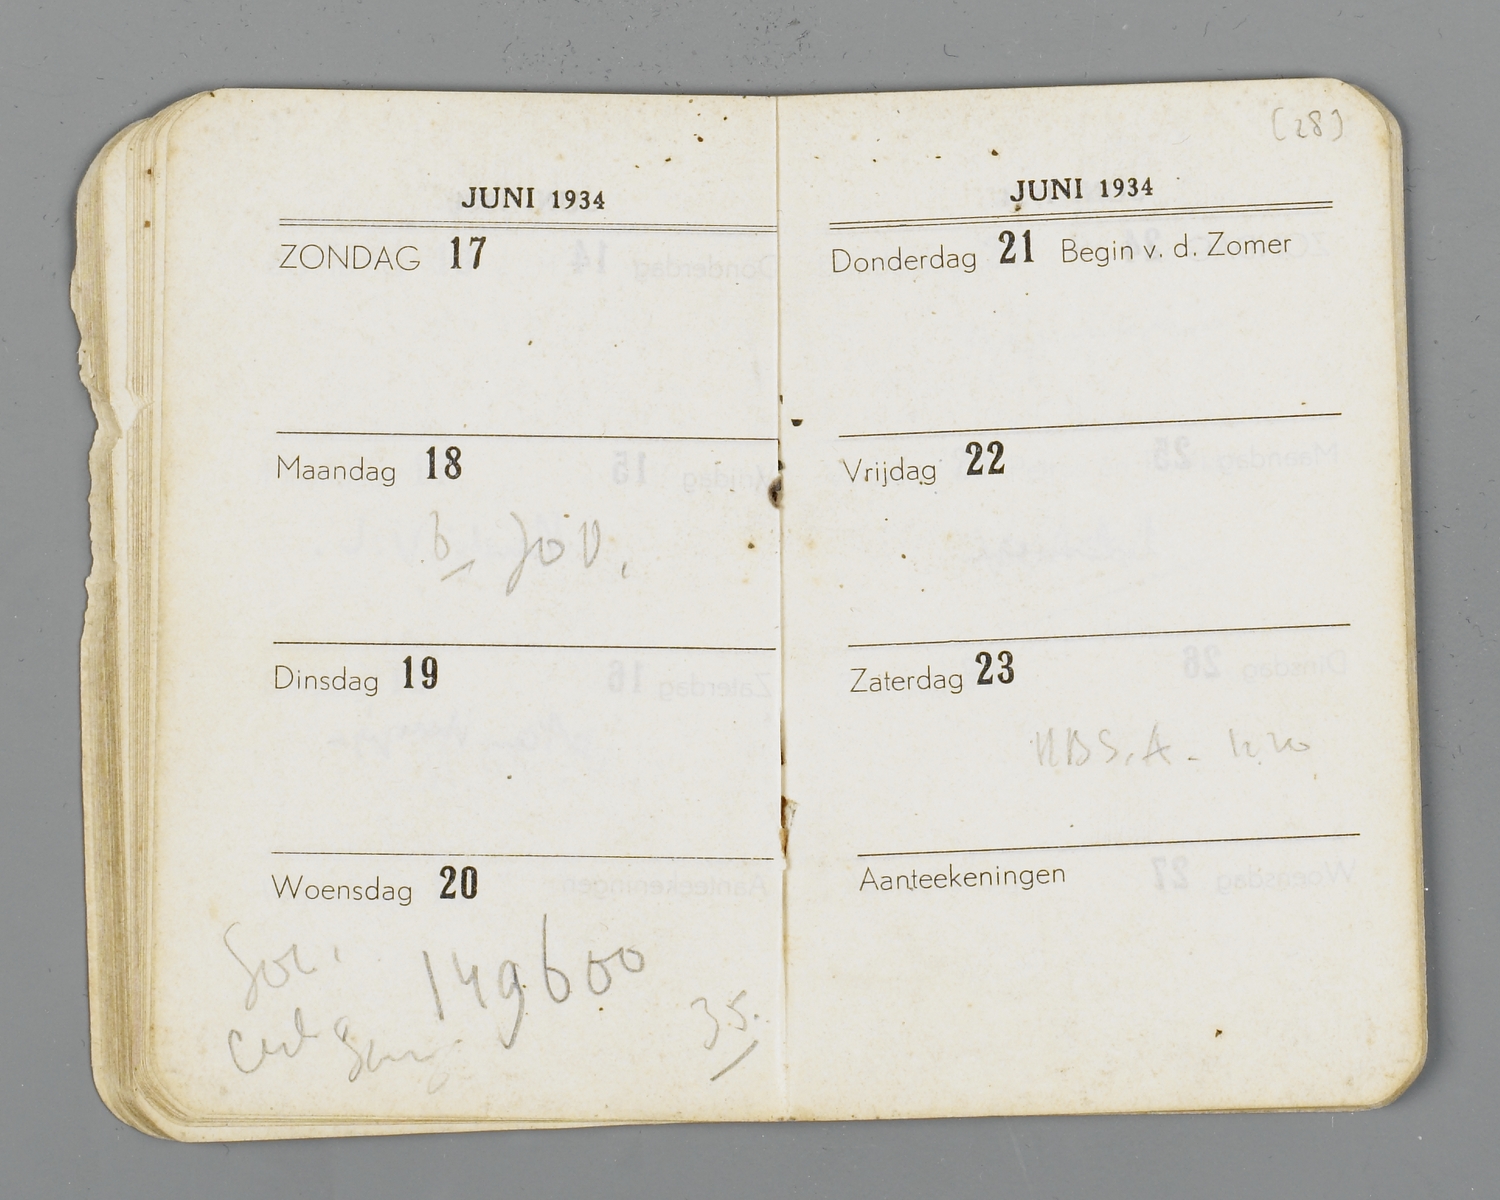 JUNI 1934
ZONDAG 17
Maandag 18
b JoV.
Dinsdag 19
Woensdag 20
149600
35.
(28)
JUNI 1934
Donderdag 21 Begin v. d. Zomer
Vrijdag 22
Zaterdag 23
Aanteekeningen